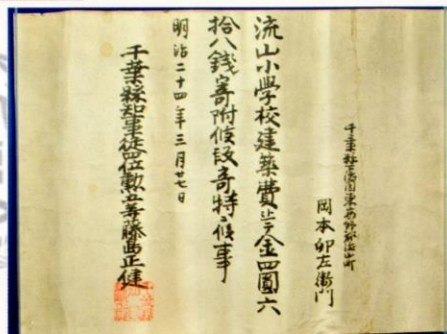 千葉縣下總國東葛飾郡流山町
岡本卯左衞門
流山小學校建築費トシテ金四圓六
拾八錢寄附候段奇特ニ候事
明治二十四年三月廿七日
千葉縣知事從四位勲五等藤島正健